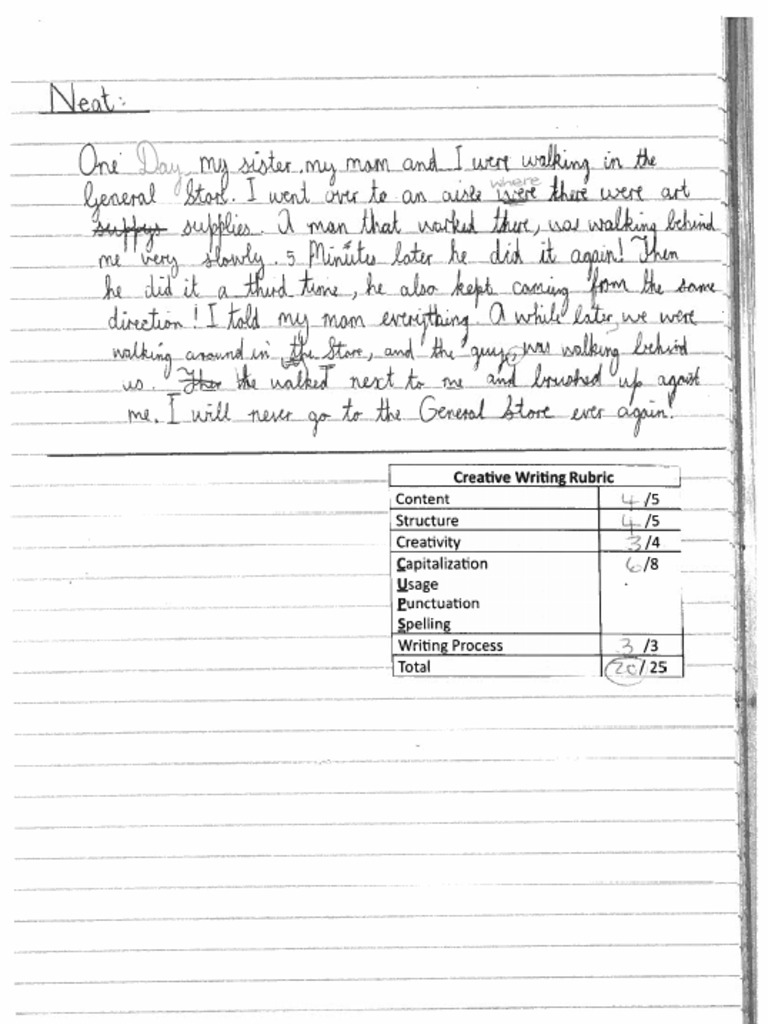 Neat:
One Day, my sister, my mom and I were walking in the
where
General Store. I went over to an aisle were there were art
suppys supplies. A man that worked there, was walking behind
me very slowly. 5 Minutes later he did it again! Then
he did it a third time, he also kept coming from the same
direction! I told my mom everything. A while later, we were
walking around in the Store, and the guy, was walking behind
us. Then He walked next to me and brushed up against
me. I will never go to the General Store ever again!
Creative Writing Rubric
Content 4 /5
Structure 4 /5
Creativity 3 /4
Capitalization 6 /8
Usage
Punctuation
Spelling
Writing Process 3 /3
Total 20 / 25